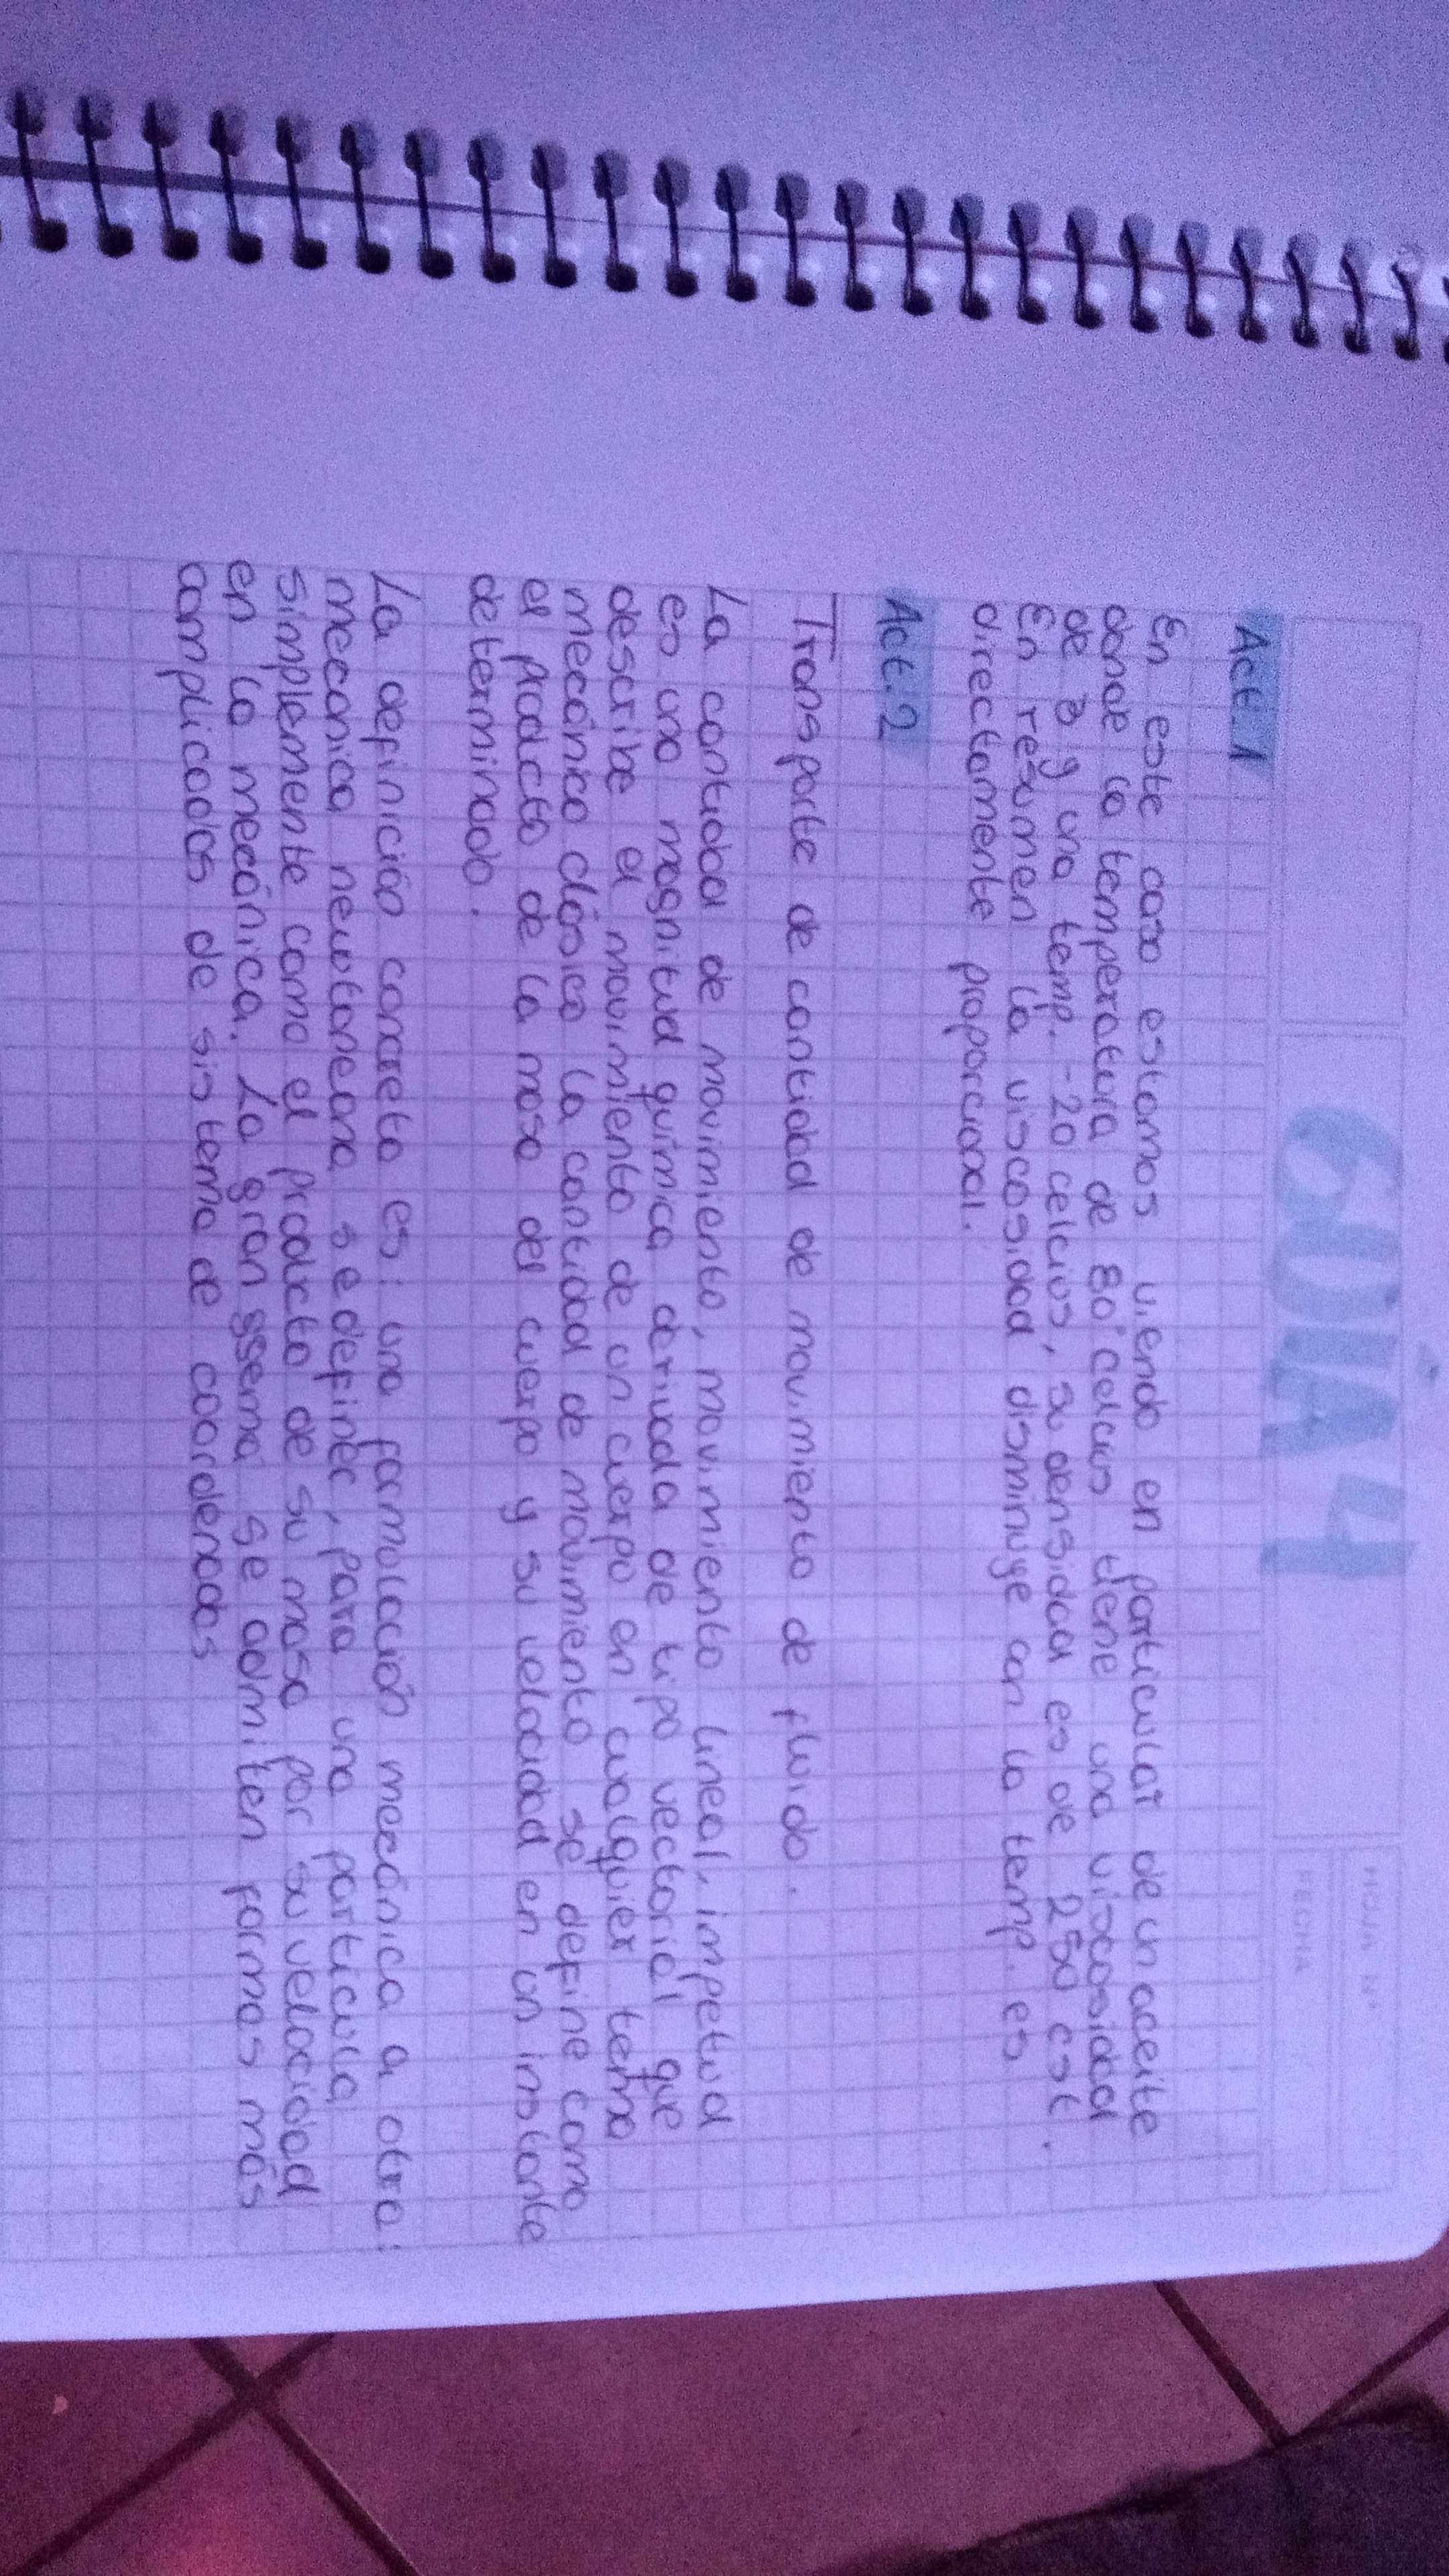 GUÍA 4
HOJA N°
FECHA
Act. 1
En este caso estamos viendo en particular de un aceite
donde la temperatura de 80° celcius tiene una viscosidad
de 3 y una temp. -20 celcius, su densidad es de 250 cst.
En resumen la viscosidad disminuye con la temp. es
directamente proporcional.
Act. 2
Transporte de cantidad de movimiento de fluido.
La cantidad de movimiento, movimiento lineal, impetud
es una magnitud química derivada de tipo vectorial que
describe el movimiento de un cuerpo en cualquier tema
mecánico clásico la cantidad de movimiento se define como
el producto de la masa del cuerpo y su velocidad en un instante
determinado.
La definición concreta es: una formulación mecánica a otra:
mecanica newtoneana se definer, para una particula
simplemente como el producto de su masa por su velocidad
en la mecánica. La gran ssema se admiten formas más
complicados de sistema de coordenadas